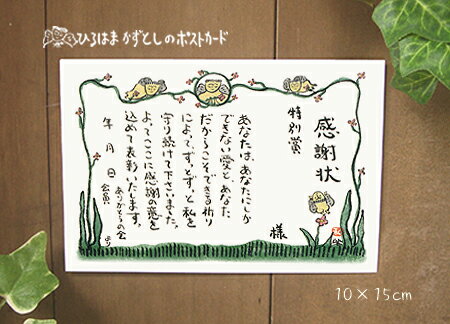 ひろはまかずとしのポストカード
感謝状
特別賞
様
あなたは、あなたにしか
できない愛と、あなた
だからこそできる祈り
によって、ずっとずっと私を
守り続けて下さいました。
よってここに感謝の意を
込めて表彰いたします。
年 月 日
ありがとうの会
会員
10×15cm